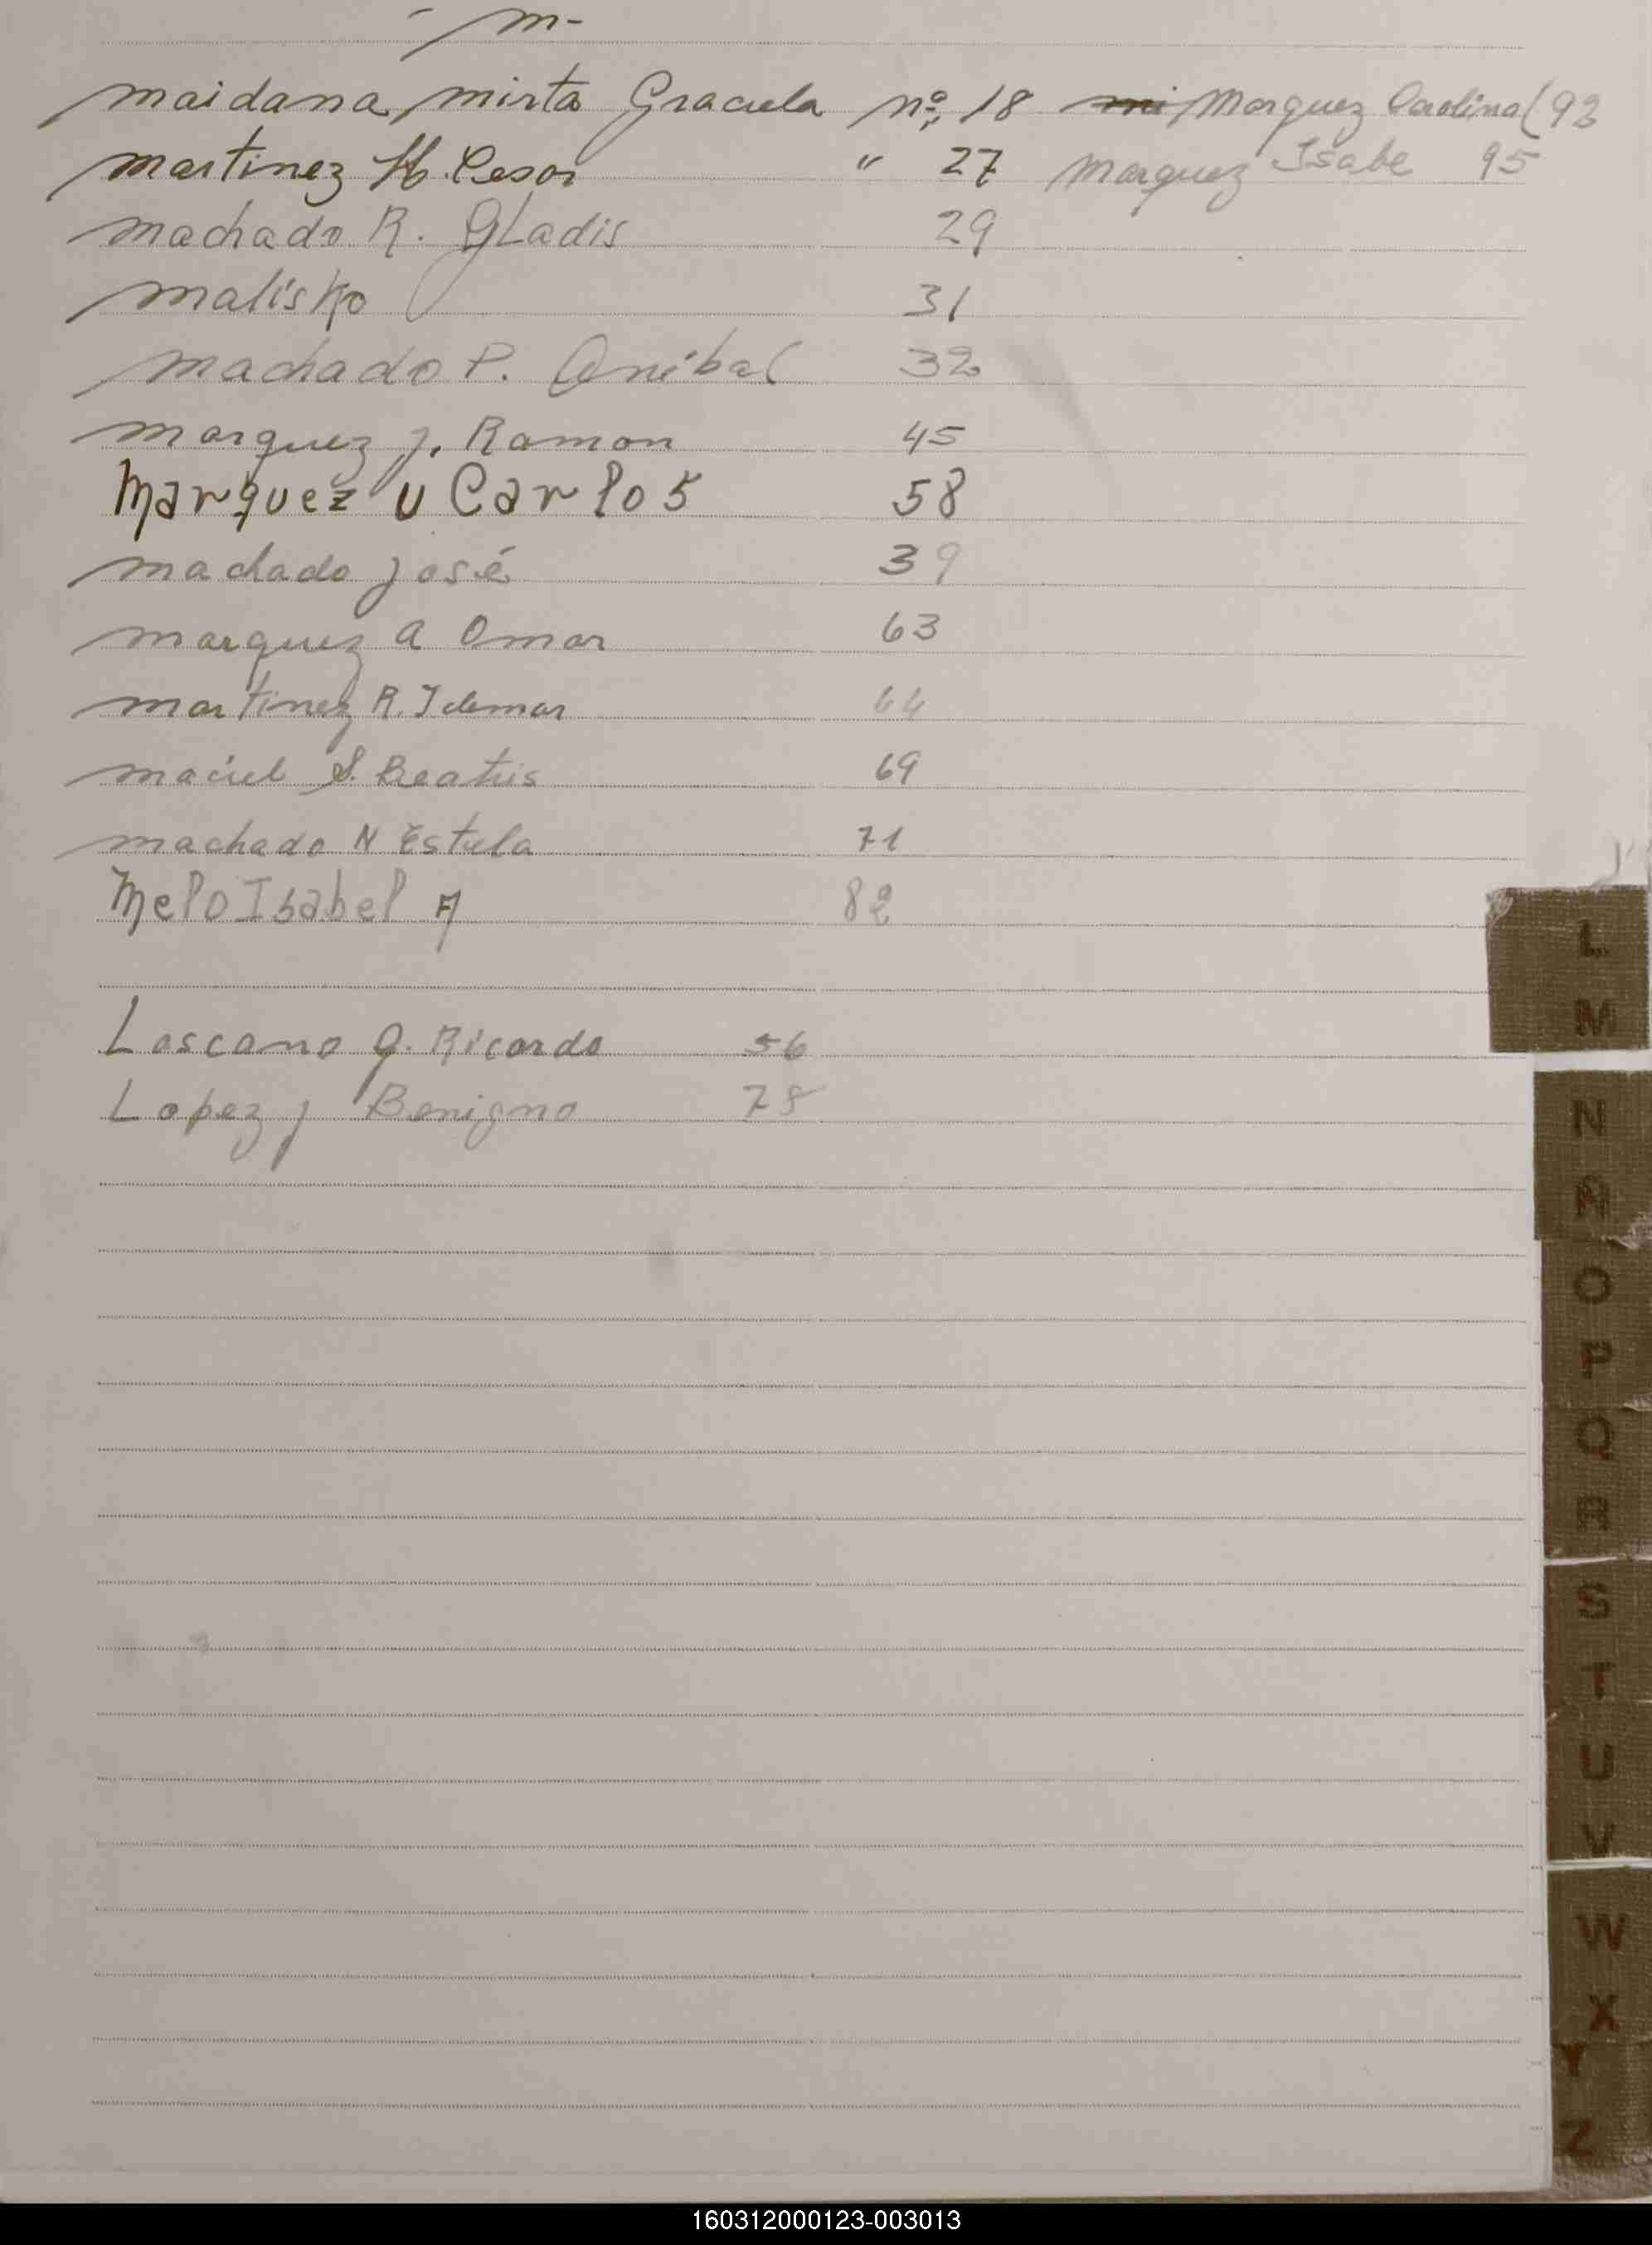 - M -
Maidana, Mirta Graciela nº 18 Marquez Carolina (93
Martinez H. Cesar " 27 Marquez Isabe 95
Machado R. Gladis 29
Malisko 31
Machado P. Anibal 32
Marquez J. Ramon 45
Marquez U Carlos 58
Machado José 39
Marquez A Omar 63
Martinez R. Idemar 64
Maciel S. Beatris 69
Machado N Estela 71
Melo Isabel A 82
Loscano G. Ricardo 56
Lopez J Benigno 78
L
M
N
Ñ
O
P
Q
R
S
T
U
V
W
X
Y
Z
160312000123-003013